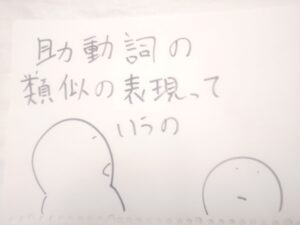 助動詞の
類似の表現って
いうの